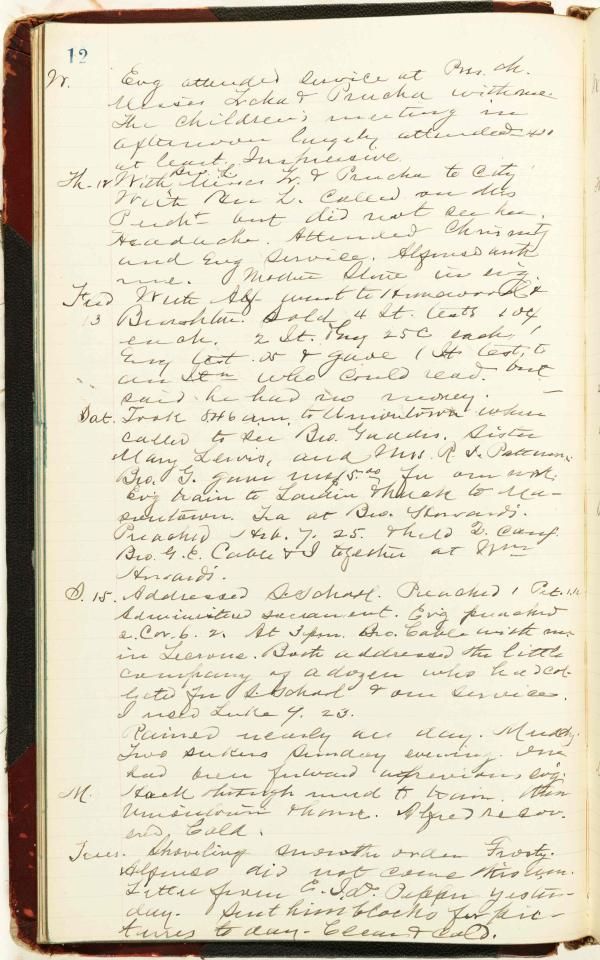 12
W. Evg attended service at Pres. Ch.
Misses & Prucha with me
The Children's meeting in
afternoon largely attended - 40
at least. Impressive.
Th. 12 With Misses & Prucha to City
Bro. L.
With Bro L. called on Mrs
but did not see her.
Headache. Attended
and Evg service. Alfonso with
me. in evg.
Frid With Alf went to Homewood &
13 Sold 4 St. tests 10¢
each. 2 St. 25c each,
Evg test .05 & gave 1 It test, to
an Itn who could read. but
said he had no money.
Sat. Took 8.46 a.m. to Uniontown where
called to see Bro. Gaddis. Sister
Mary Lewis, and Mrs. R. J. Patterson.
Bro. G. gave me $5.00 for our work.
Evg train to & hack to Ma-
sontown. Tea at Bro. Howard's.
Preached Heb. 7. 25. & held Q. Conf.
Bro. G. E. Cable & I together at Wm
Howard's.
S. 15. Addressed S. School. Preached 1 Pet. 1.
Administered sacrament. Evg preached
2. Cor. 6. 2. At 3 pm. Bro. Cable with me
in Leckrone. Both addressed the little
company of a dozen who had col-
lected for S. School & our service.
I used Luke 9. 23.
Rained nearly all day. Muddy.
Two seekers Sunday evening. One
had been forward a previous evg.
M. Hack through mud to train, then
Uniontown & home. Alfred recov-
ered Cold.
Tues. Shoveling snow the order Frosty.
Alfonso did not come this a.m.
Letter from E. yester-
day. Sent him blocks for pic-
tures to day. Clear & cold.